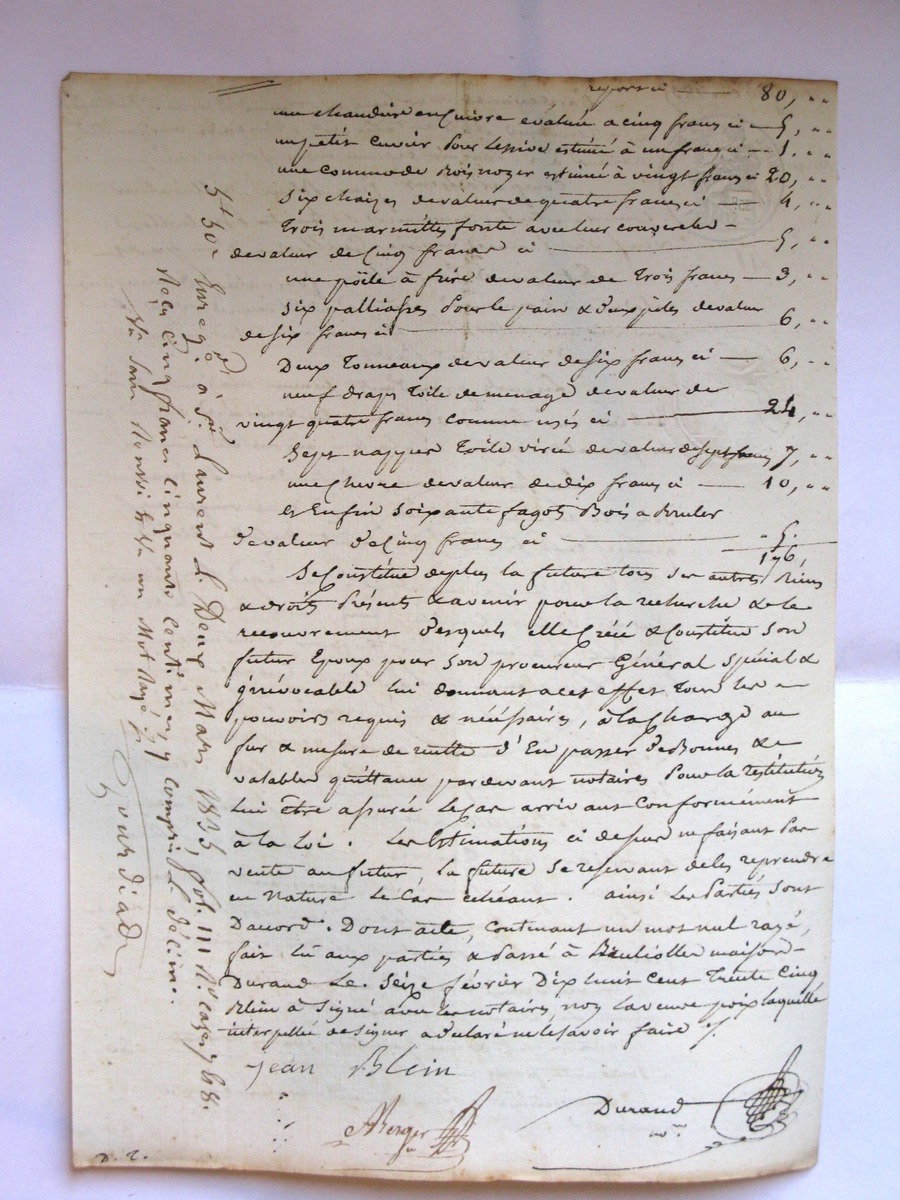 report ci 80, "
une chaudiere en Cuivre évaluée a cinq francs ci 5, "
un petit cuvier pour Lessive estimé à un franc ci 1. "
une commode Bois noyer estimée à vingt francs ci 20, "
Six chaises de valeur de quatre francs ci 4, "
Trois marmittes fonte avec leur couvercle
de valeur de Cinq francs ci 5, "
une pöile à frire de valeur de Trois francs 3, "
Six palliasses pour le pain & deux de valeur
de six francs ci 6, "
Deux Tonneaux de valeur de six francs ci 6, "
neuf draps Toile de menage de valeur de
vingt quatre francs comme usés ci 24, "
Sept nappes Toile de valeur de sept francs 7, "
une Chevre de valeur de dix francs ci 10, "
Et Enfin Soixante fagots Bois a Bruler
de valeur de Cinq francs ci 5.
176,
Se Constitue de plus la future tous ses autres Biens
& droits Présents & avenir pour la recherche & le
recouvrement desquels elle Créé & Constitue Son
futur Epoux pour Son procureur Général Spécial &
irrévocable lui donnant a cet effet Tous les
pouvoirs requis & nécéssaires, à la Charge au
fur & mesure de d'En passer de Bonnes &
valables quittance pardevant notaires Pour la restitution
Lui être assurée Le Cas arrivant Conformément
à la Loi. Les Estimations ci dessus ne faisant Pas
vente au futur, La future Se reservant de les reprendre
en Nature Le Cas échéant. ainsi Les Parties Sont
D'accord. Dont acte, Contenant un mot nul rayé,
fait Lu aux parties & Passé à maison
Durand Le Seize février Dix huit Cent Trente Cinq
Blein à Signé avec les notaires, non La veuve laquelle
interpellée de Signer a déclaré ne le Savoir faire
jean Blein
ABerger
Durand
nore
D. E.
Enregé. à St Laurent L. Deux Mars 1835, fol. 111 Ro. Case 7 & 8.
Reçu Cinq francs Cinquante Centimes, y Compris Le Décime.